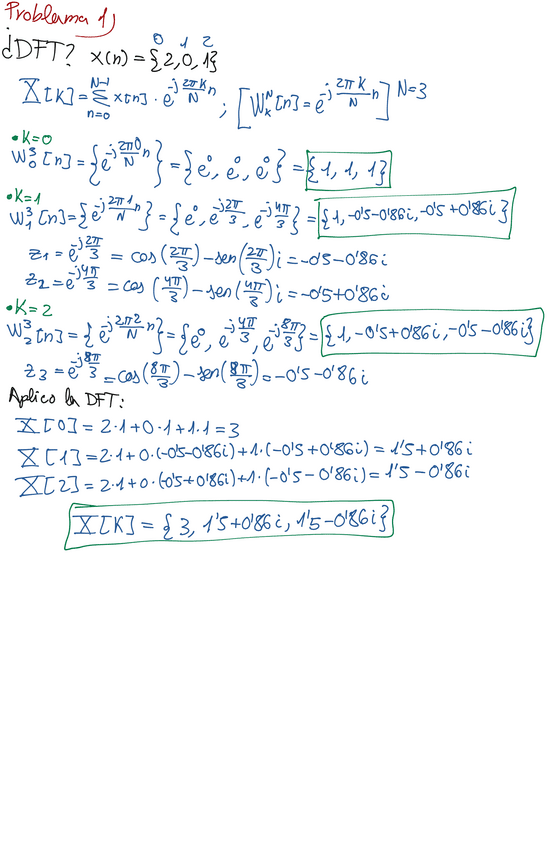 Problema 1)
0 1 2
¿DFT? x(n) = {2,0,1}
X[K] = Σ_{n=0}^{N-1} x[n] · e^{-j 2πk/N n} ; [W_K^N[n] = e^{-j 2πk/N n}] N=3
• K=0
W_0^3[n] = {e^{-j 2π0/N n}} = {e^0, e^0, e^0} = {1, 1, 1}
• K=1
W_1^3[n] = {e^{-j 2π1/N n}} = {e^0, e^{-j 2π/3}, e^{-j 4π/3}} = {1, -0'5-0'86i, -0'5+0'86i}
z1 = e^{-j 2π/3} = cos(2π/3) - sen(2π/3)i = -0'5-0'86i
z2 = e^{-j 4π/3} = cos(4π/3) - sen(4π/3)i = -0'5+0'86i
• K=2
W_2^3[n] = {e^{-j 2π2/N n}} = {e^0, e^{-j 4π/3}, e^{-j 8π/3}} = {1, -0'5+0'86i, -0'5-0'86i}
z3 = e^{-j 8π/3} = cos(8π/3) - sen(8π/3) = -0'5-0'86i
Aplico la DFT:
X[0] = 2·1+0·1+1·1 = 3
X[1] = 2·1+0·(-0'5-0'86i)+1·(-0'5+0'86i) = 1'5+0'86i
X[2] = 2·1+0·(-0'5+0'86i)+1·(-0'5-0'86i) = 1'5-0'86i
X[K] = {3, 1'5+0'86i, 1'5-0'86i}